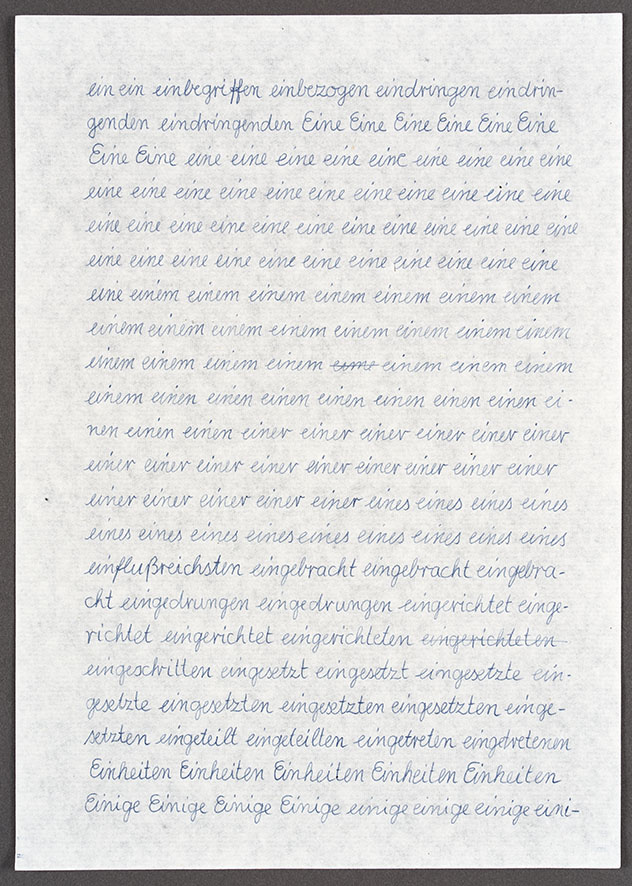 ein ein einbegriffen einbezogen eindringen eindrin-
genden eindringenden Eine Eine Eine Eine Eine Eine
Eine Eine eine eine eine eine eine eine eine eine eine
eine eine eine eine eine eine eine eine eine eine eine
eine eine eine eine eine eine eine eine eine eine eine
eine eine eine eine eine eine eine eine eine eine eine
eine einem einem einem einem einem einem einem
einem einem einem einem einem einem einem einem
einem einem einem einem eime einem einem einem
einem einen einen einen einen einen einen einen ei-
nen einen einen einer einer einer einer einer einer
einer einer einer einer einer einer einer einer einer
einer einer einer einer einer eines eines eines eines
eines eines eines eines eines eines eines eines eines
einflußreichsten eingebracht eingebracht eingebra-
cht eingedrungen eingedrungen eingerichtet einge-
richtet eingerichtet eingerichteten eingerichteten
eingeschritten eingesetzt eingesetzt eingesetzte ein-
gesetzte eingesetzten eingesetzten eingesetzten einge-
setzten eingeteilt eingeteilten eingetreten eingetretenen
Einheiten Einheiten Einheiten Einheiten Einheiten
Einige Einige Einige Einige einige einige einige eini-